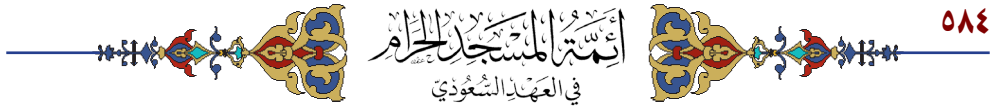 ٥٨٤
أئمة المسجد الحرام
في العهد السعودي